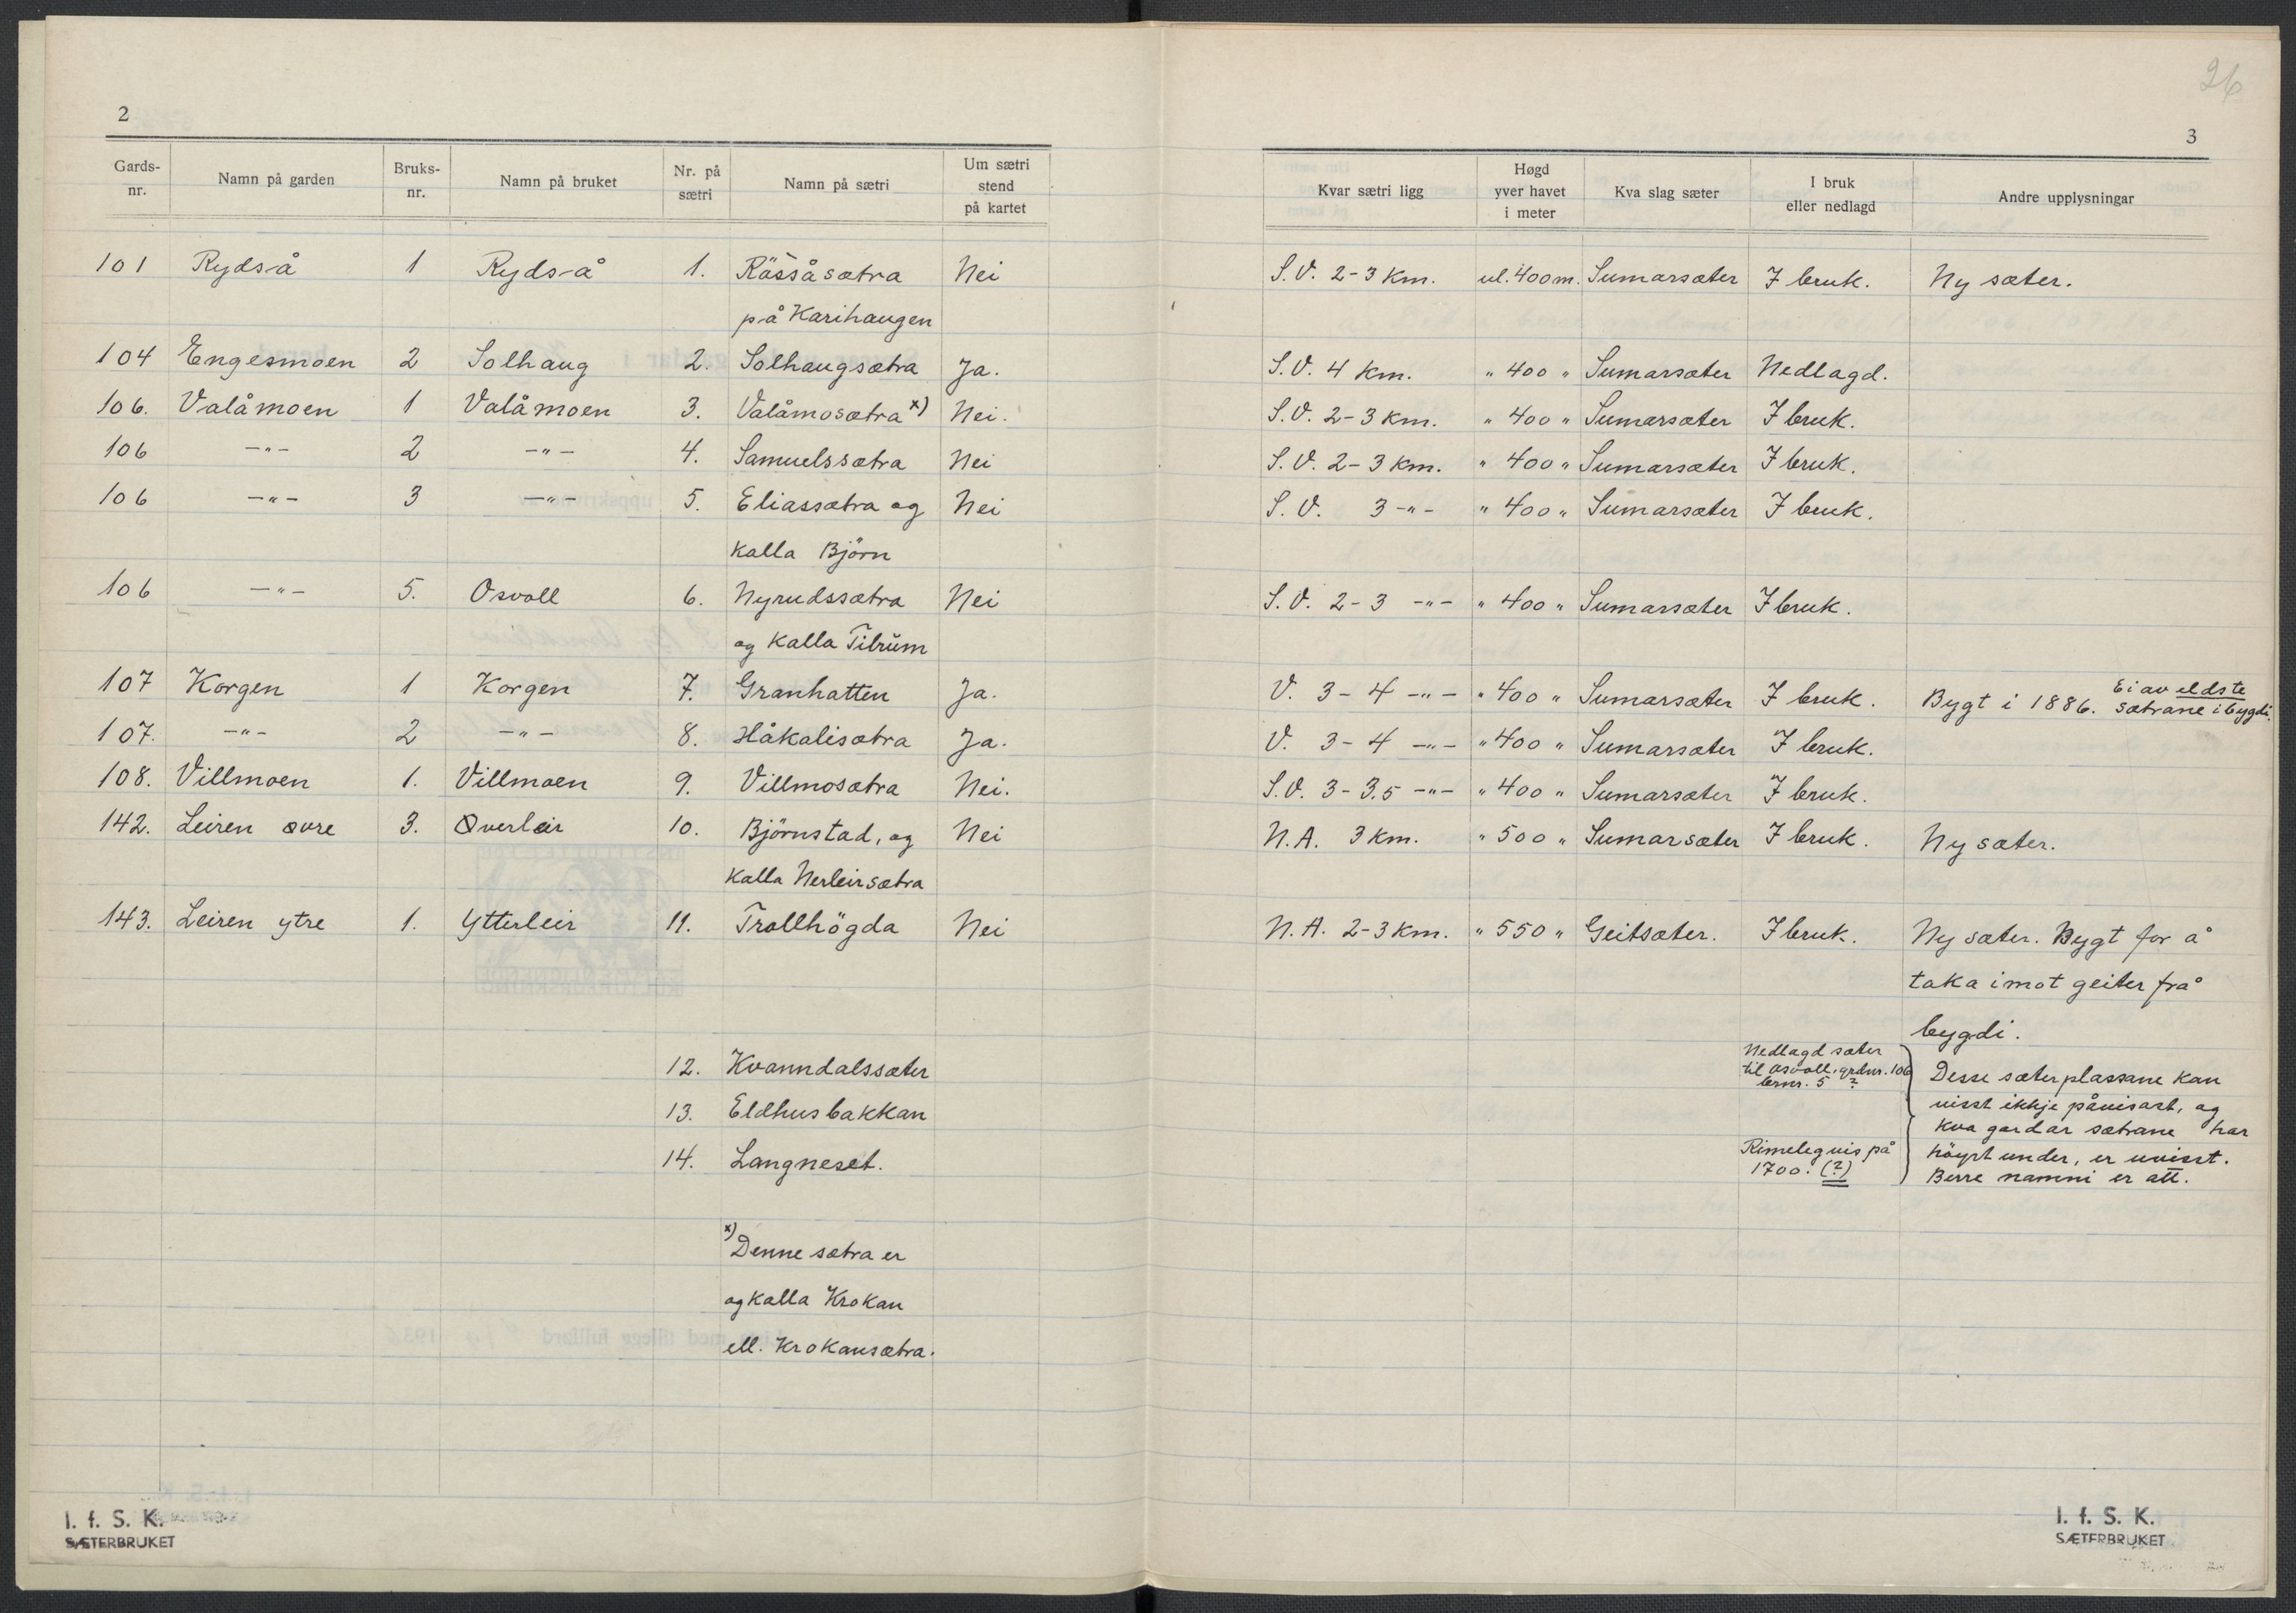 26
2
3
Gards-nr. Namn på garden Bruks-nr. Namn på bruket Nr. på sætri Namn på sætri Um sætri stend på kartet Kvar sætri ligg Høgd yver havet i meter Kva slag sæter I bruk eller nedlagd Andre upplysningar
101 Rydså 1 Rydså 1. Rössåsætra Nei S.V. 2-3 km. ul. 400 m. Sumarsæter I bruk. Ny sæter.
på Karihaugen
104 Engesmoen 2 Solhaug 2. Solhaugsætra Ja. S.V. 4 km. " 400 " Sumarsæter Nedlagd.
106. Valåmoen 1 Valåmoen 3. Valåmosætra x) Nei. S.V. 2-3 km. " 400 " Sumarsæter I bruk.
106 -"- 2 -"- 4. Samuelssætra Nei S.V. 2-3 km. " 400 " Sumarsæter I bruk.
106 -"- 3 -"- 5. Eliassætra og Nei S.V. 3 -"- " 400 " Sumarsæter I bruk.
kalla Björn
106 -"- 5. Osvoll 6. Nyrudssætra Nei S.V. 2-3 -"- " 400 " Sumarsæter I bruk.
og kalla Tibrum
107 Korgen 1 Korgen 7. Granhatten Ja. V. 3-4 -"- " 400 " Sumarsæter I bruk. Bygt i 1886. Ei av eldste
sætrane i bygdi.
107. -"- 2 -"- 8. Håkalisætra Ja. V. 3-4 -"- " 400 " Sumarsæter I bruk.
108. Villmoen 1. Villmoen 9. Villmosætra Nei. S.V. 3-3,5 -"- " 400 " Sumarsæter I bruk.
142. Leiren øvre 3. Øverleir 10. Björnstad, og Nei N.A. 3 km. " 500 " Sumarsæter I bruk. Ny sæter.
kalla Nerleirsætra
143. Leiren ytre 1. Ytterleir 11. Trollhögda Nei N.A. 2-3 km. " 550 " Geitsæter. I bruk. Ny sæter. Bygt for å
taka imot geiter frå
bygdi.
12. Kvanndalssæter Nedlagd sæter
til Osvoll, grdnr. 106
brnr. 5 ?
Desse sæterplassane kan
13. Eldhusbakkan visst ikkje påvisast, og
kva gardar sætrane har
14. Langneset. Rimelegvis på
1700. (?)
höyrt under, er uvisst.
Berre namni er att.
x) Denne sætra er
og kalla Krokan
ell. Krokansætra.
I. f. S. K.
SÆTERBRUKET
I. f. S. K.
SÆTERBRUKET